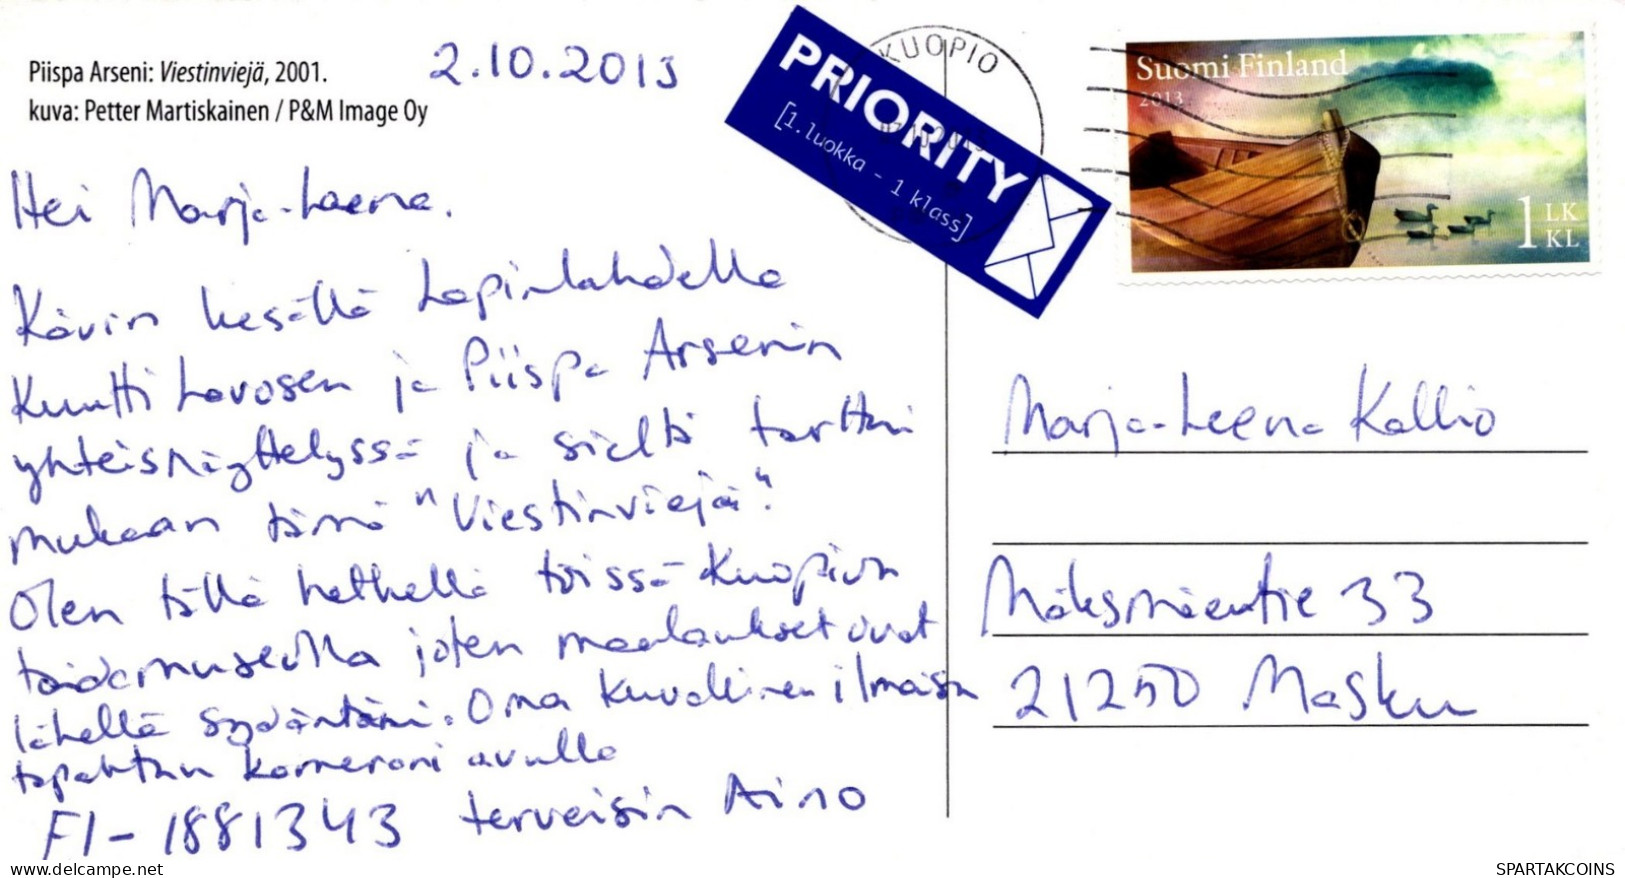 Piispa Arseni: Viestinviejä, 2001.
kuva: Petter Martiskainen / P&M Image Oy
2.10.2013
Hei Marja-Leena.
Kävin kesällä Lapinlahdella
Kuutti Lavosen ja Piispa Arsenin
yhteisnäyttelyssä ja sieltä tarttui
mukaan tämä "Viestinviejä".
Olen tällä hetkellä töissä Kuopion
taidemuseolla joten maalaukset ovat
lähellä sydäntäni. Oma kuvallinen ilmaisu
tapahtuu kamerani avulla
FI-1881343 terveisin Aino
PRIORITY
[1.luokka - 1 klass]
KUOPIO
Suomi Finland
2013
1 LK
KL
Marja-Leena Kallio
Mäksmäentie 33
21250 Masku
delcampe.net
SPARTAKCOINS